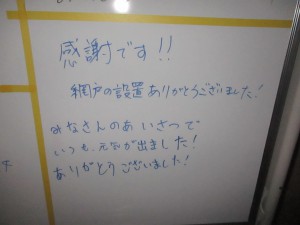 感謝です!!
網戸の設置ありがとうございました!
みなさんのあいさつで
いつも、元気が出ました!
ありがとうございました!